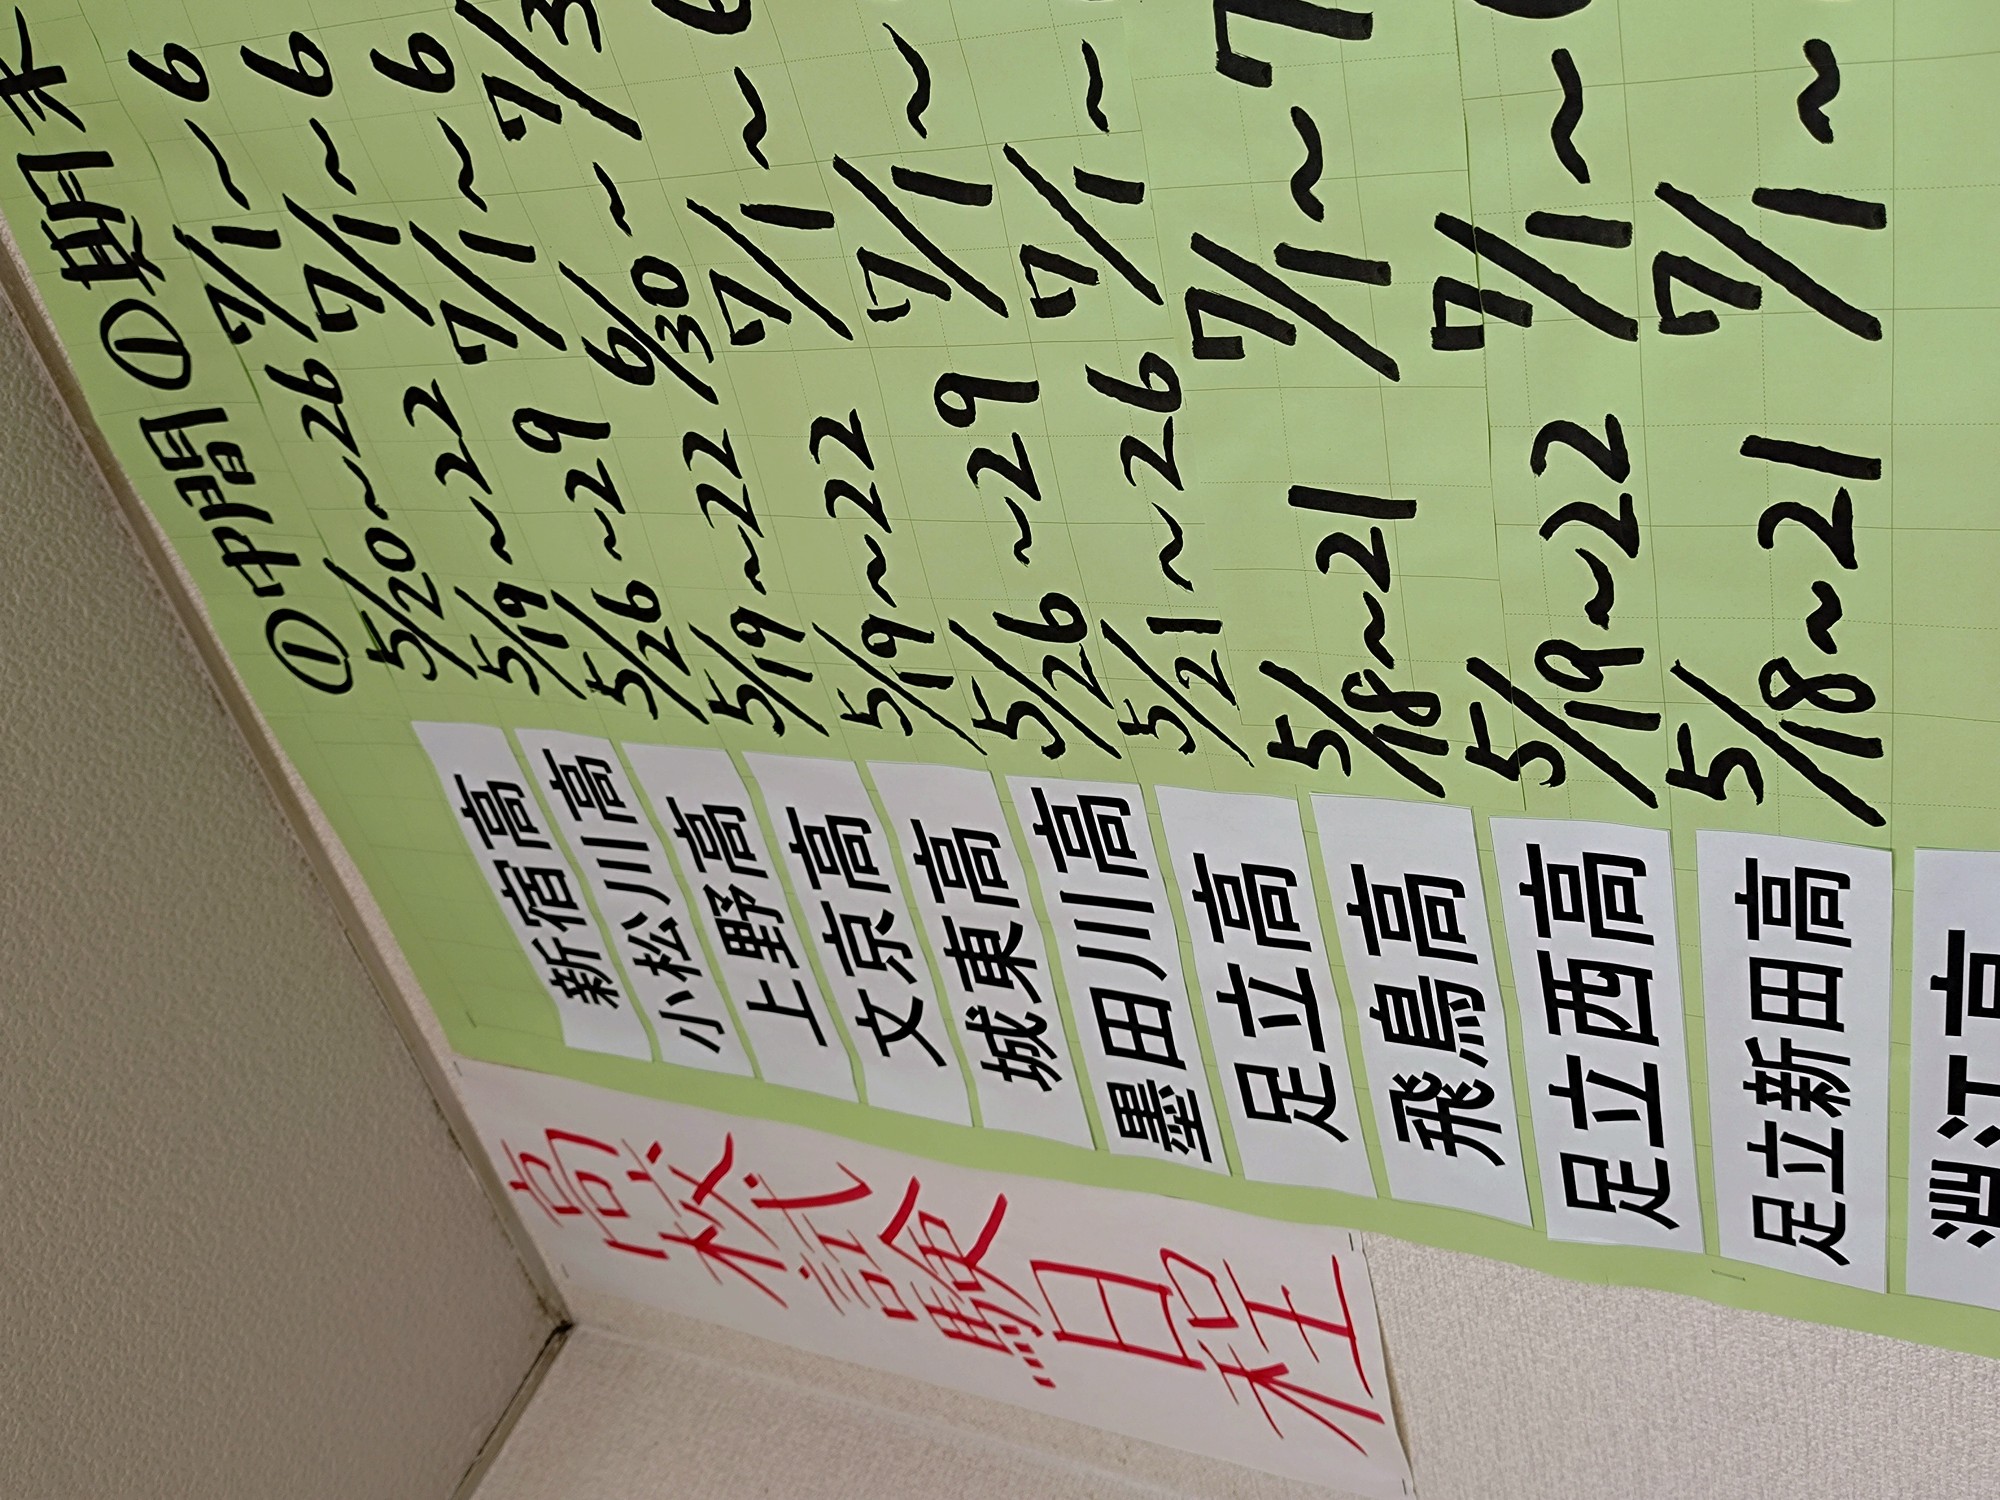 高校試験日程
①中間 ①期末
新宿高 5/20~26 7/1~6
小松川高 5/19~22 7/1~6
上野高 5/26~29 7/1~6
文京高 5/19~22 6/30~7/3
城東高 5/19~22 7/1~6
墨田川高 5/26~29 7/1~
足立高 5/21~26 7/1~
飛鳥高 5/18~21 7/1~7
足立西高 5/19~22 7/1~
足立新田高 5/18~21 7/1~
江高